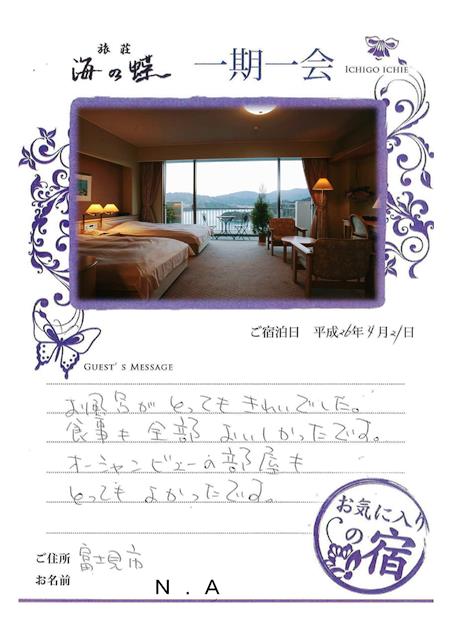 旅荘
海の蝶
一期一会
ICHIGO ICHIE
ご宿泊日 平成26年9月21日
GUEST'S MESSAGE
お風呂がとってもきれいでした。
食事も全部おいしかったです。
オーシャンビューの部屋も
とってもよかったです。
お気に入り
の宿
ご住所 富士見市
お名前 N.A